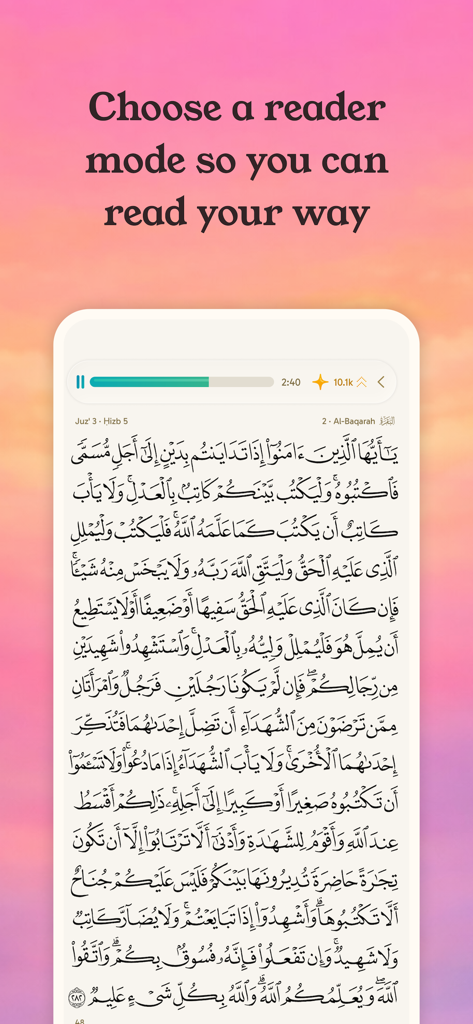 Choose a reader
mode so you can
read your way
2:40
10.1k
Juz' 3 - Ḥizb 5
2 - Al-Baqarah
يَـٰٓأَيُّهَا ٱلَّذِينَ ءَامَنُوٓا۟ إِذَا تَدَايَنتُم بِدَيْنٍ إِلَىٰٓ أَجَلٍ مُّسَمًّى
فَٱكْتُبُوهُ ۚ وَلْيَكْتُب بَّيْنَكُمْ كَاتِبٌۢ بِٱلْعَدْلِ ۚ وَلَا يَأْبَ
كَاتِبٌ أَن يَكْتُبَ كَمَا عَلَّمَهُ ٱللَّهُ ۚ فَلْيَكْتُبْ وَلْيُمْلِلِ
ٱلَّذِى عَلَيْهِ ٱلْحَقُّ وَلْيَتَّقِ ٱللَّهَ رَبَّهُۥ وَلَا يَبْخَسْ مِنْهُ شَيْـًٔا ۚ
فَإِن كَانَ ٱلَّذِى عَلَيْهِ ٱلْحَقُّ سَفِيهًا أَوْ ضَعِيفًا أَوْ لَا يَسْتَطِيعُ
أَن يُمِلَّ هُوَ فَلْيُمْلِلْ وَلِيُّهُۥ بِٱلْعَدْلِ ۚ وَٱسْتَشْهِدُوا۟ شَهِيدَيْنِ
مِن رِّجَالِكُمْ ۖ فَإِن لَّمْ يَكُونَا رَجُلَيْنِ فَرَجُلٌ وَٱمْرَأَتَانِ
مِمَّن تَرْضَوْنَ مِنَ ٱلشُّهَدَآءِ أَن تَضِلَّ إِحْدَىٰهُمَا فَتُذَكِّرَ
إِحْدَىٰهُمَا ٱلْأُخْرَىٰ ۚ وَلَا يَأْبَ ٱلشُّهَدَآءُ إِذَا مَا دُعُوا۟ ۚ وَلَا تَسْـَٔمُوٓا۟
أَن تَكْتُبُوهُ صَغِيرًا أَوْ كَبِيرًا إِلَىٰٓ أَجَلِهِۦ ۚ ذَٰلِكُمْ أَقْسَطُ
عِندَ ٱللَّهِ وَأَقْوَمُ لِلشَّهَـٰدَةِ وَأَدْنَىٰٓ أَلَّا تَرْتَابُوٓا۟ ۖ إِلَّآ أَن تَكُونَ
تِجَـٰرَةً حَاضِرَةً تُدِيرُونَهَا بَيْنَكُمْ فَلَيْسَ عَلَيْكُمْ جُنَاحٌ
أَلَّا تَكْتُبُوهَا ۗ وَأَشْهِدُوٓا۟ إِذَا تَبَايَعْتُمْ ۚ وَلَا يُضَآرَّ كَاتِبٌ
وَلَا شَهِيدٌ ۚ وَإِن تَفْعَلُوا۟ فَإِنَّهُۥ فُسُوقٌۢ بِكُمْ ۗ وَٱتَّقُوا۟
ٱللَّهَ ۖ وَيُعَلِّمُكُمُ ٱللَّهُ ۗ وَٱللَّهُ بِكُلِّ شَىْءٍ عَلِيمٌ ٢٨٢
48